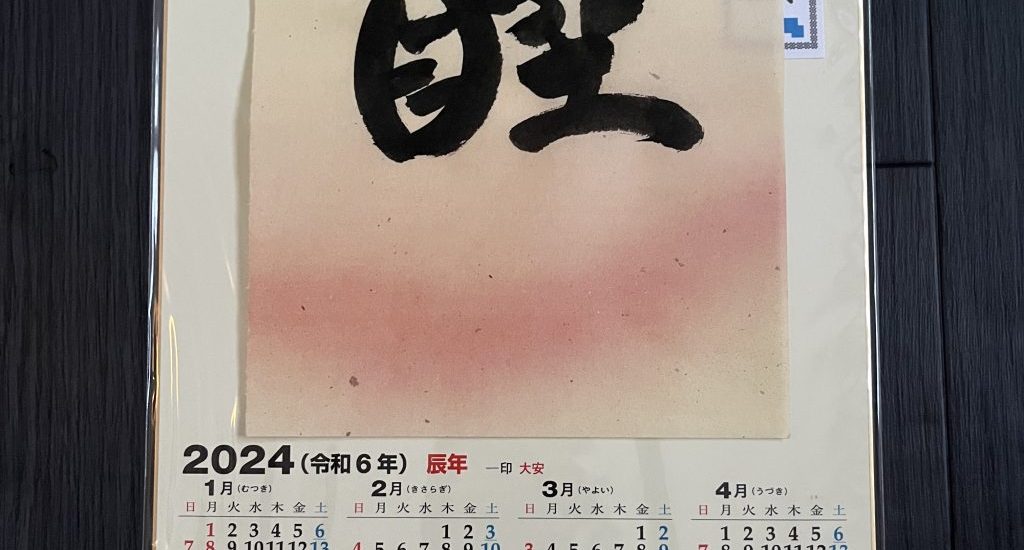 2024(令和6年) 辰年 —印 大安
1月(むつき) 2月(きさらぎ) 3月(やよい) 4月(うづき)
日 月 火 水 木 金 土 日 月 火 水 木 金 土 日 月 火 水 木 金 土 日 月 火 水 木 金 土
1 2 3 4 5 6 1 2 3 1 2 1 2 3 4 5 6
7 8 9 10 11 12 13 4 5 6 7 8 9 10 3 4 5 6 7 8 9 7 8 9 10 11 12 13